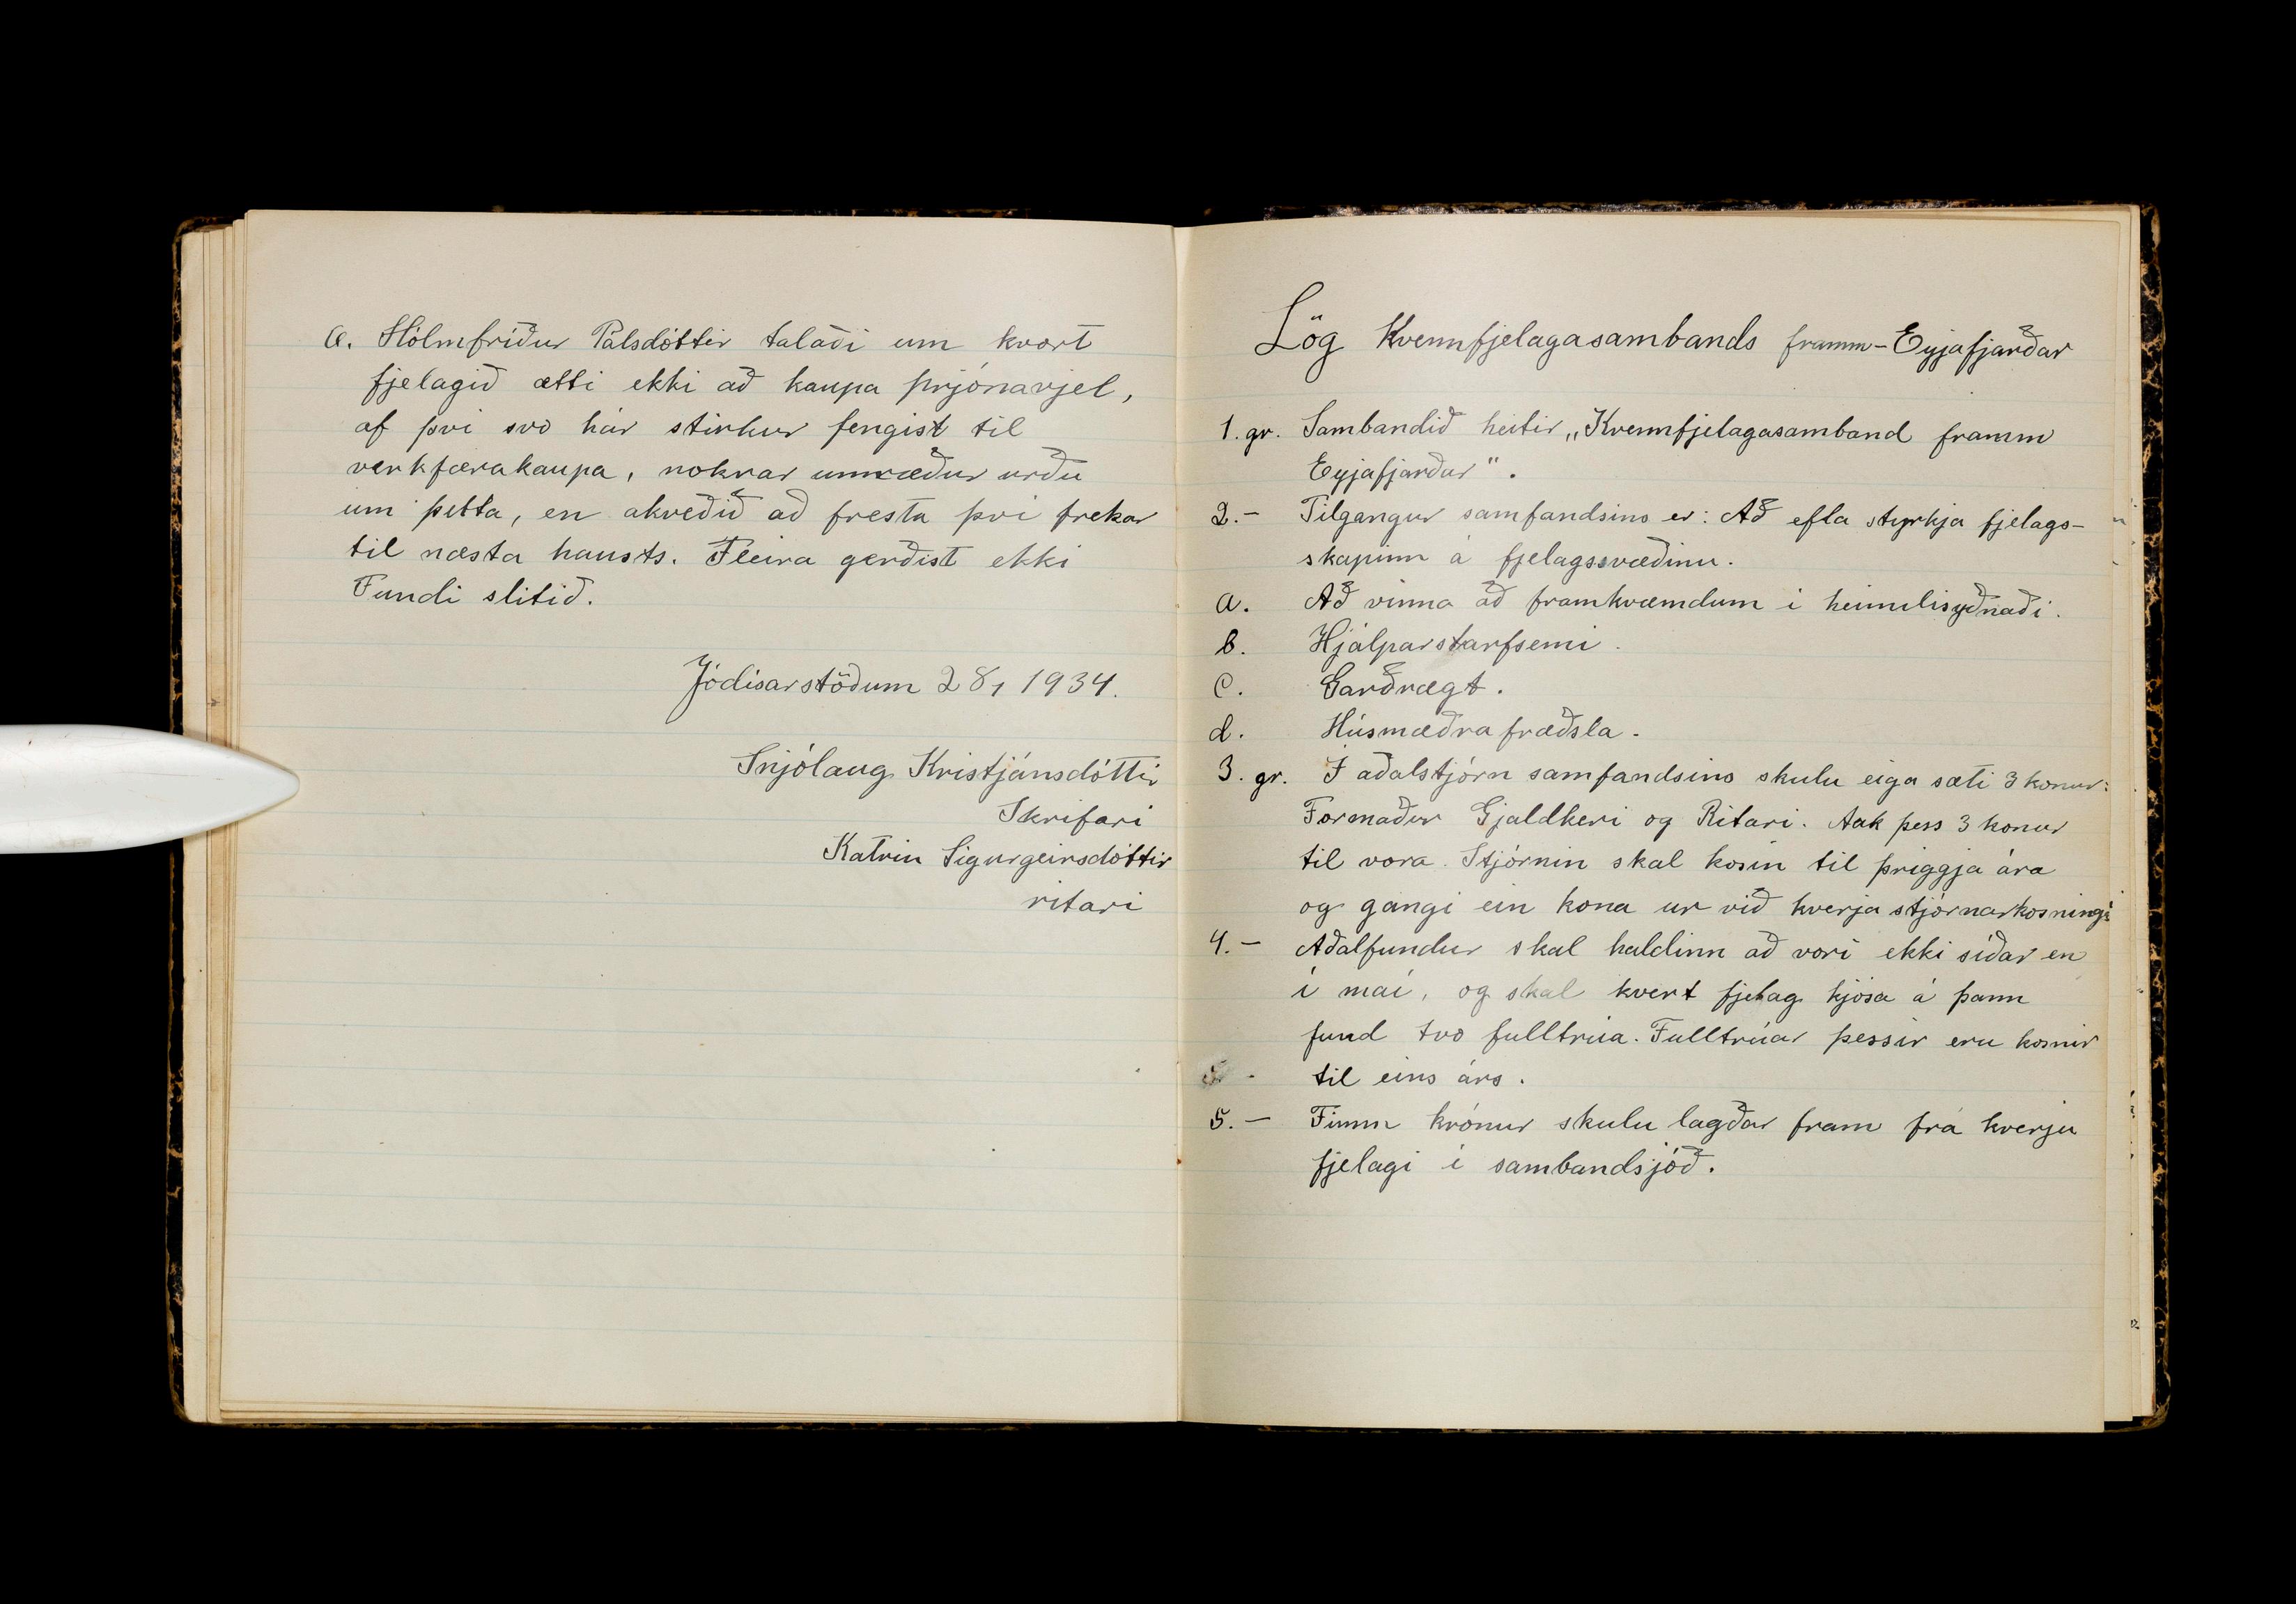 a. Hólmfríður Pálsdóttir talaði um hvort
fjelagið ætti ekki að kaupa prjónavjel,
af því svo hár stirkur fengist til
verkfærakaupa, nokrar umræður urðu
um þetta, en akveðið að fresta því frekar
til næsta hausts. Fleira gerðist ekki
Fundi slitið.
Jódisarstöðum 28, 1934.
Snjólaug Kristjánsdóttir
Skrifari
Katrin Sigurgeirsdóttir
ritari
Lög Kvennfjelagasambands framm-Eyjafjarðar
1. gr. Sambandið heitir „Kvennfjelagasamband framm
Eyjafjarðar".
2. – Tilgangur samfandsins er: Að efla styrkja fjelags-
skapinn á fjelagssvæðinu.
a. Að vinna að framkvæmdum i heimilisyðnaði.
b. Hjálparstarfsemi.
c. Garðrægt.
d. Húsmæðra fræðsla.
3. gr. I aðalstjórn samfandsins skulu eiga sæti 3 konur:
Formaður Gjaldkeri og Ritari. Auk þess 3 konur
til vara. Stjórnin skal kosin til þriggja ára
og gangi ein kona ur við hverja stjórnarkosningu
4. – Aðalfundur skal haldinn að vori ekki síðar en
í maí, og skal hvert fjelag kjósa á þann
fund tvo fulltrúa. Fulltrúar þessir eru kosnir
til eins árs.
5. – Fimm krónur skulu lagðar fram frá hverju
fjelagi i sambandsjóð.